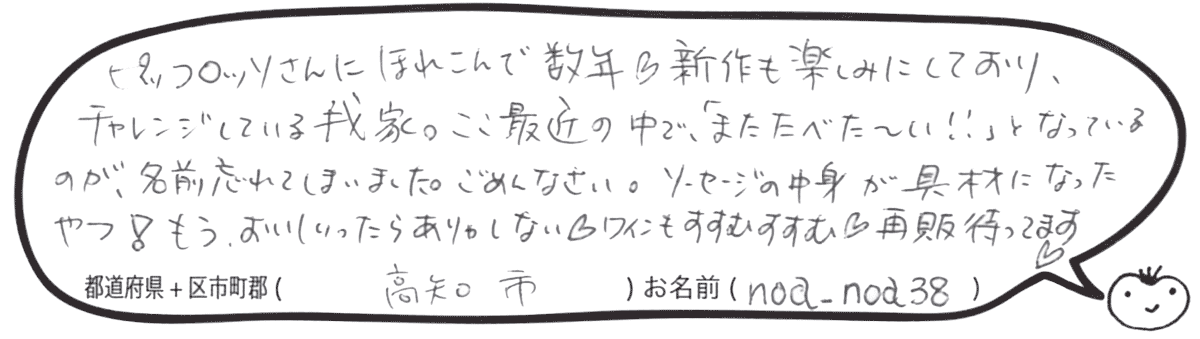 ピッコロッソさんにほれこんで数年♡新作も楽しみにしており、
チャレンジしている我家。ここ最近の中で、「またたべた〜い!!」となっている
のが、名前忘れてしまいました。ごめんなさい。ソーセージの中身が具材になった
やつ!もう、おいしいったらありゃしない♡ワインもすすむすすむ♡再販待ってます♡
都道府県+区市町郡( 高知市 )お名前( noa_noa38 )